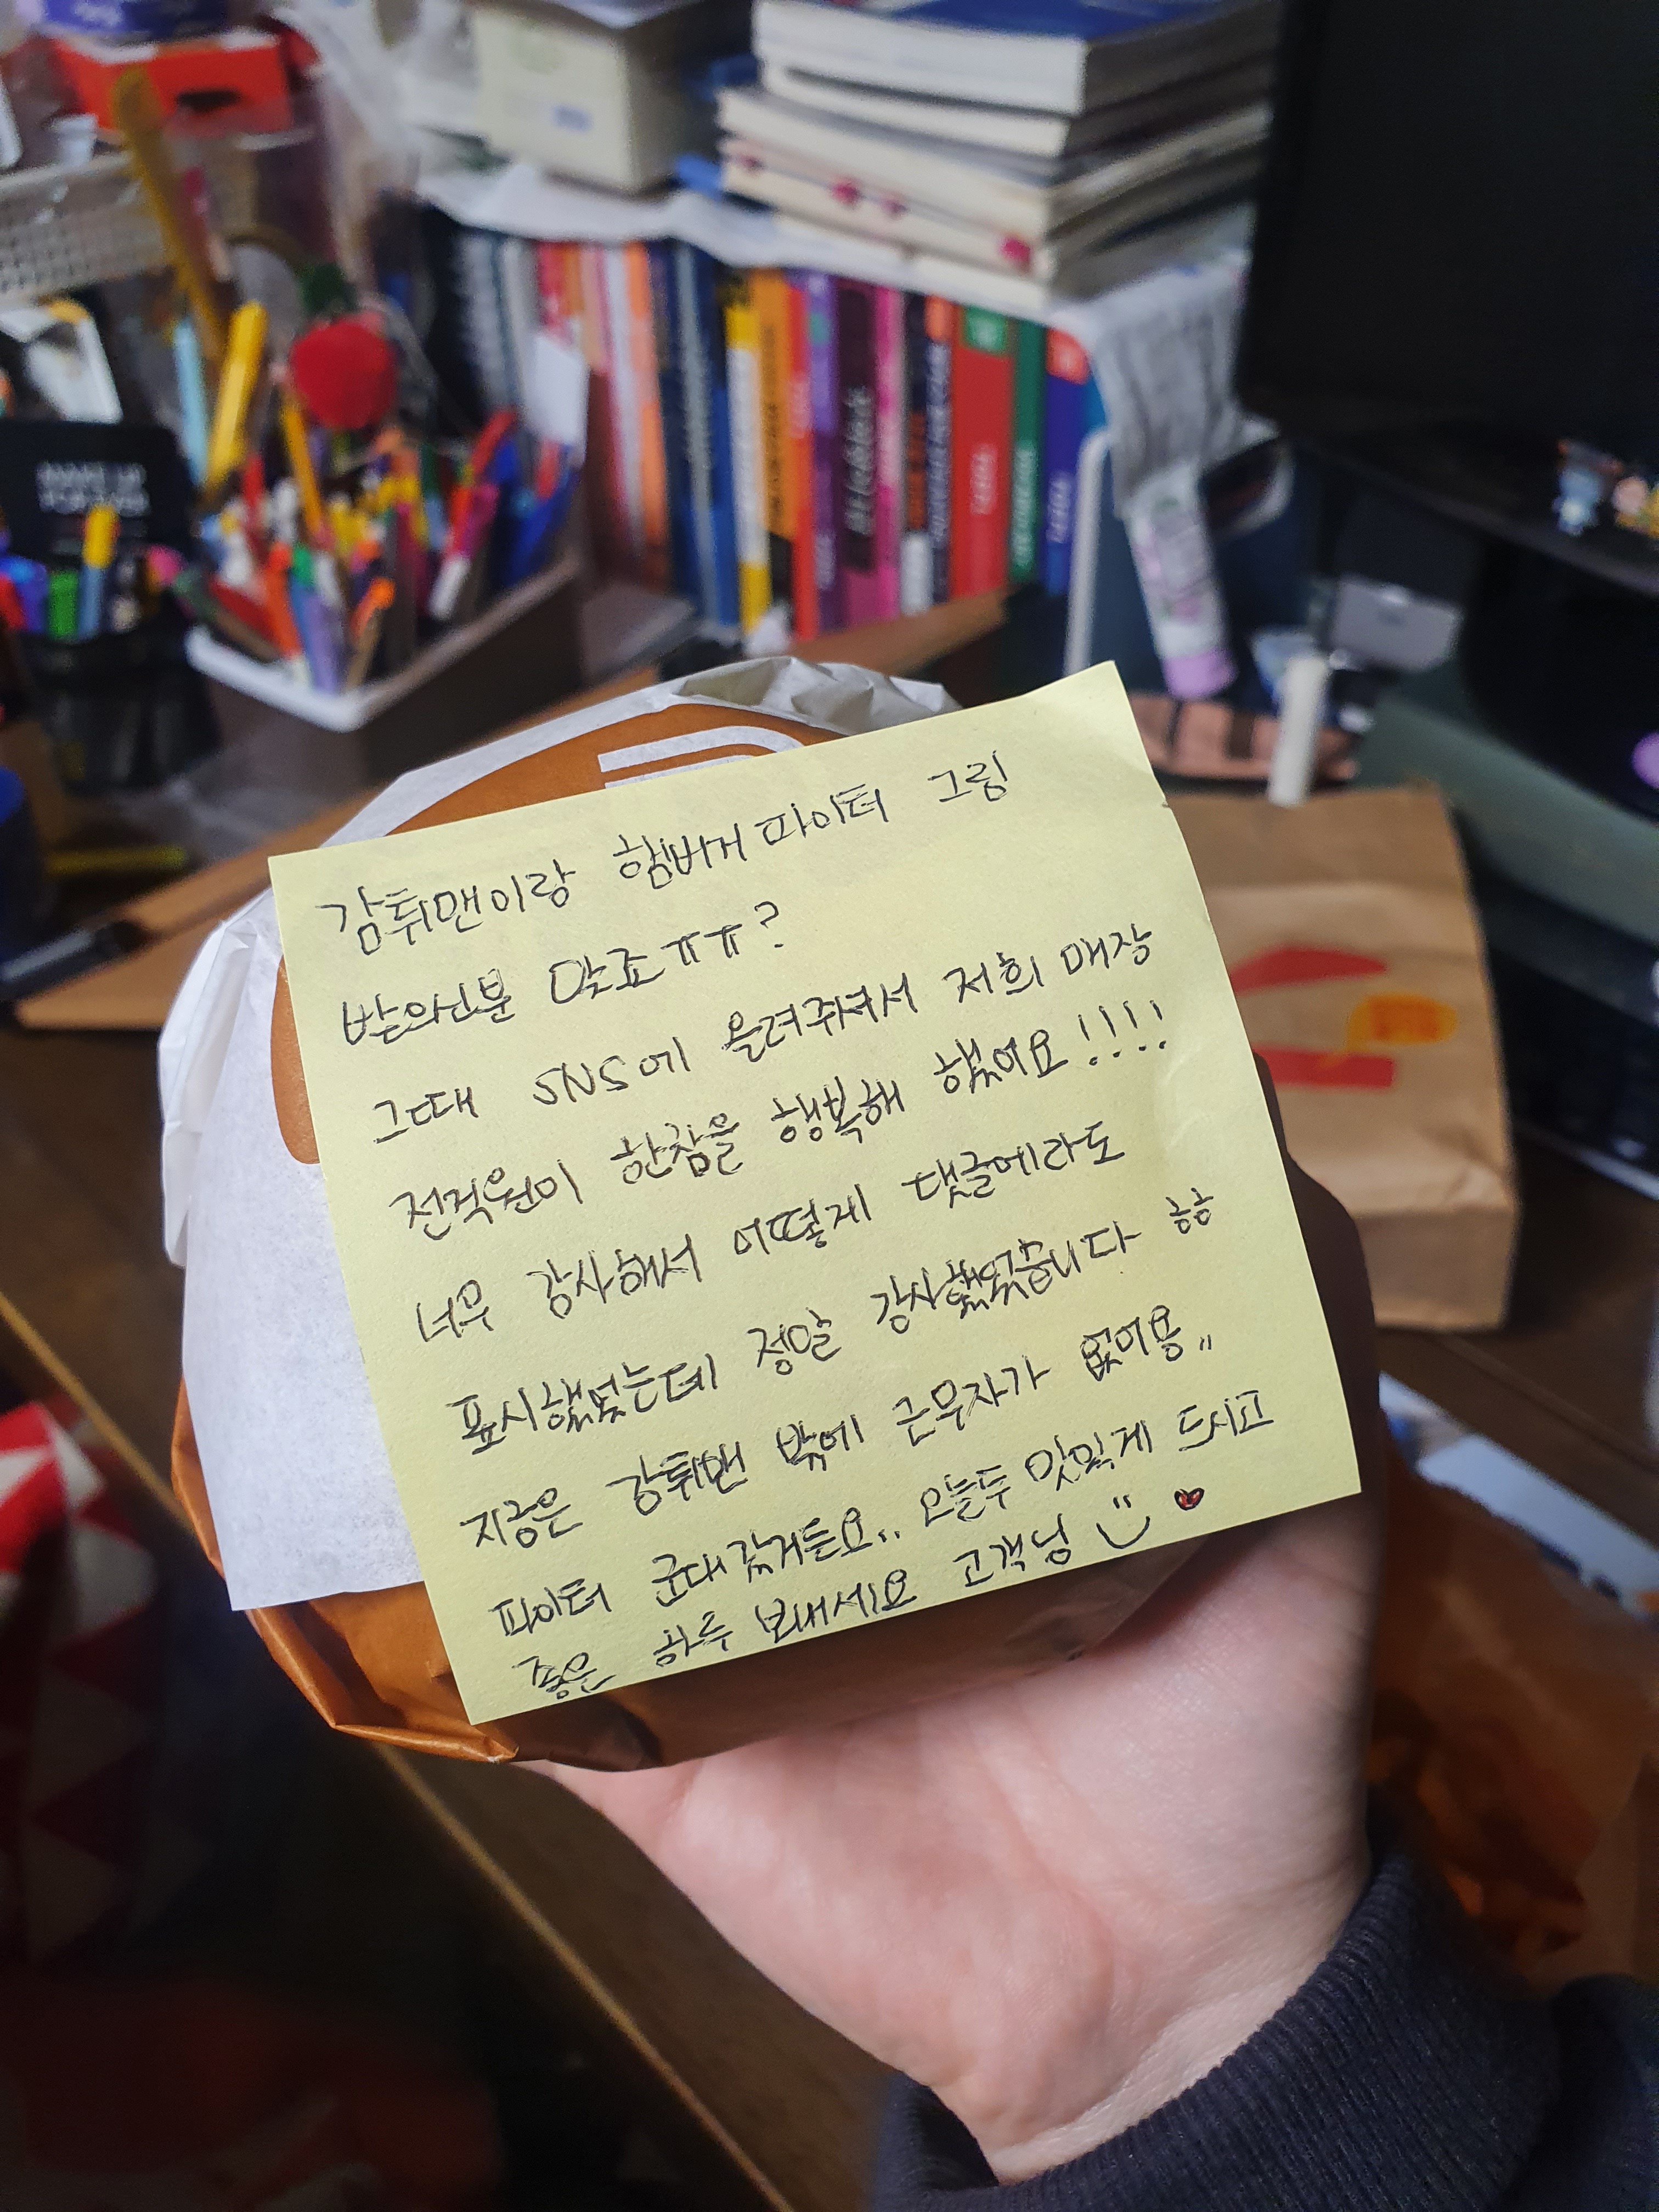 감튀맨이랑 힘버거파이터 그림
받으신분 맞죠ㅠㅠ?
그때 SNS에 올려주셔서 저희 매장
전직원이 한참을 행복해 했어요!!!!
너무 감사해서 어떻게 댓글에라도
표시했었는데 정말 감사했었습니다 ㅎㅎ
지금은 감튀맨 밖에 근무자가 없어용,,
파이터 군대갔거든요.. 오늘두 맛있게 드시고
좋은 하루 보내세요 고객님
MAKE UP
FOR EVER